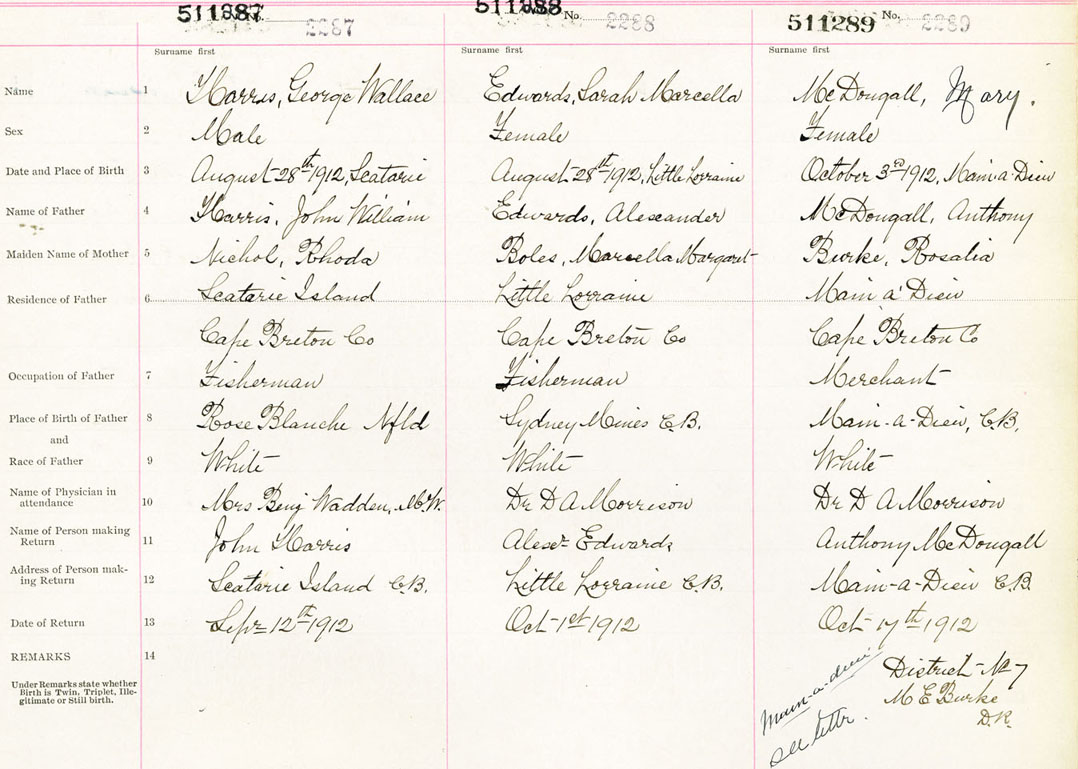 511287 2287 511288 No. 2288 511289 No. 2289
Surname first Surname first Surname first
Name 1 Harris, George Wallace Edwards, Sarah Marcella McDougall, Mary.
Sex 2 Male Female Female
Date and Place of Birth 3 August 28th 1912, Scatarie August 28th 1912, Little Lorraine October 3rd 1912, Main-a-Dieu
Name of Father 4 Harris, John William Edwards, Alexander McDougall, Anthony
Maiden Name of Mother 5 Nichol, Rhoda Boles, Marcella Margaret Burke, Rosalia
Residence of Father 6 Scatarie Island Little Lorraine Main a' Dieu
Cape Breton Co Cape Breton Co Cape Breton Co
Occupation of Father 7 Fisherman Fisherman Merchant
Place of Birth of Father 8 Rose Blanche Nfld Sydney Mines C.B. Main-a-Dieu, C.B.
and
Race of Father 9 White White White
Name of Physician in
attendance 10 Mrs Benj Wadden, M.W. Dr D A Morrison Dr D A Morrison
Name of Person making
Return 11 John Harris Alexr Edwards Anthony McDougall
Address of Person mak-
ing Return 12 Scatarie Island C.B. Little Lorraine C.B. Main-a-Dieu C.B.
Date of Return 13 Sepr 12th 1912 Oct 1st 1912 Oct 17th 1912
REMARKS 14
Under Remarks state whether
Birth is Twin, Triplet, Ille-
gitimate or Still birth.
District No 7
M E Burke
D.R.
Main-a-dieu
see letter.